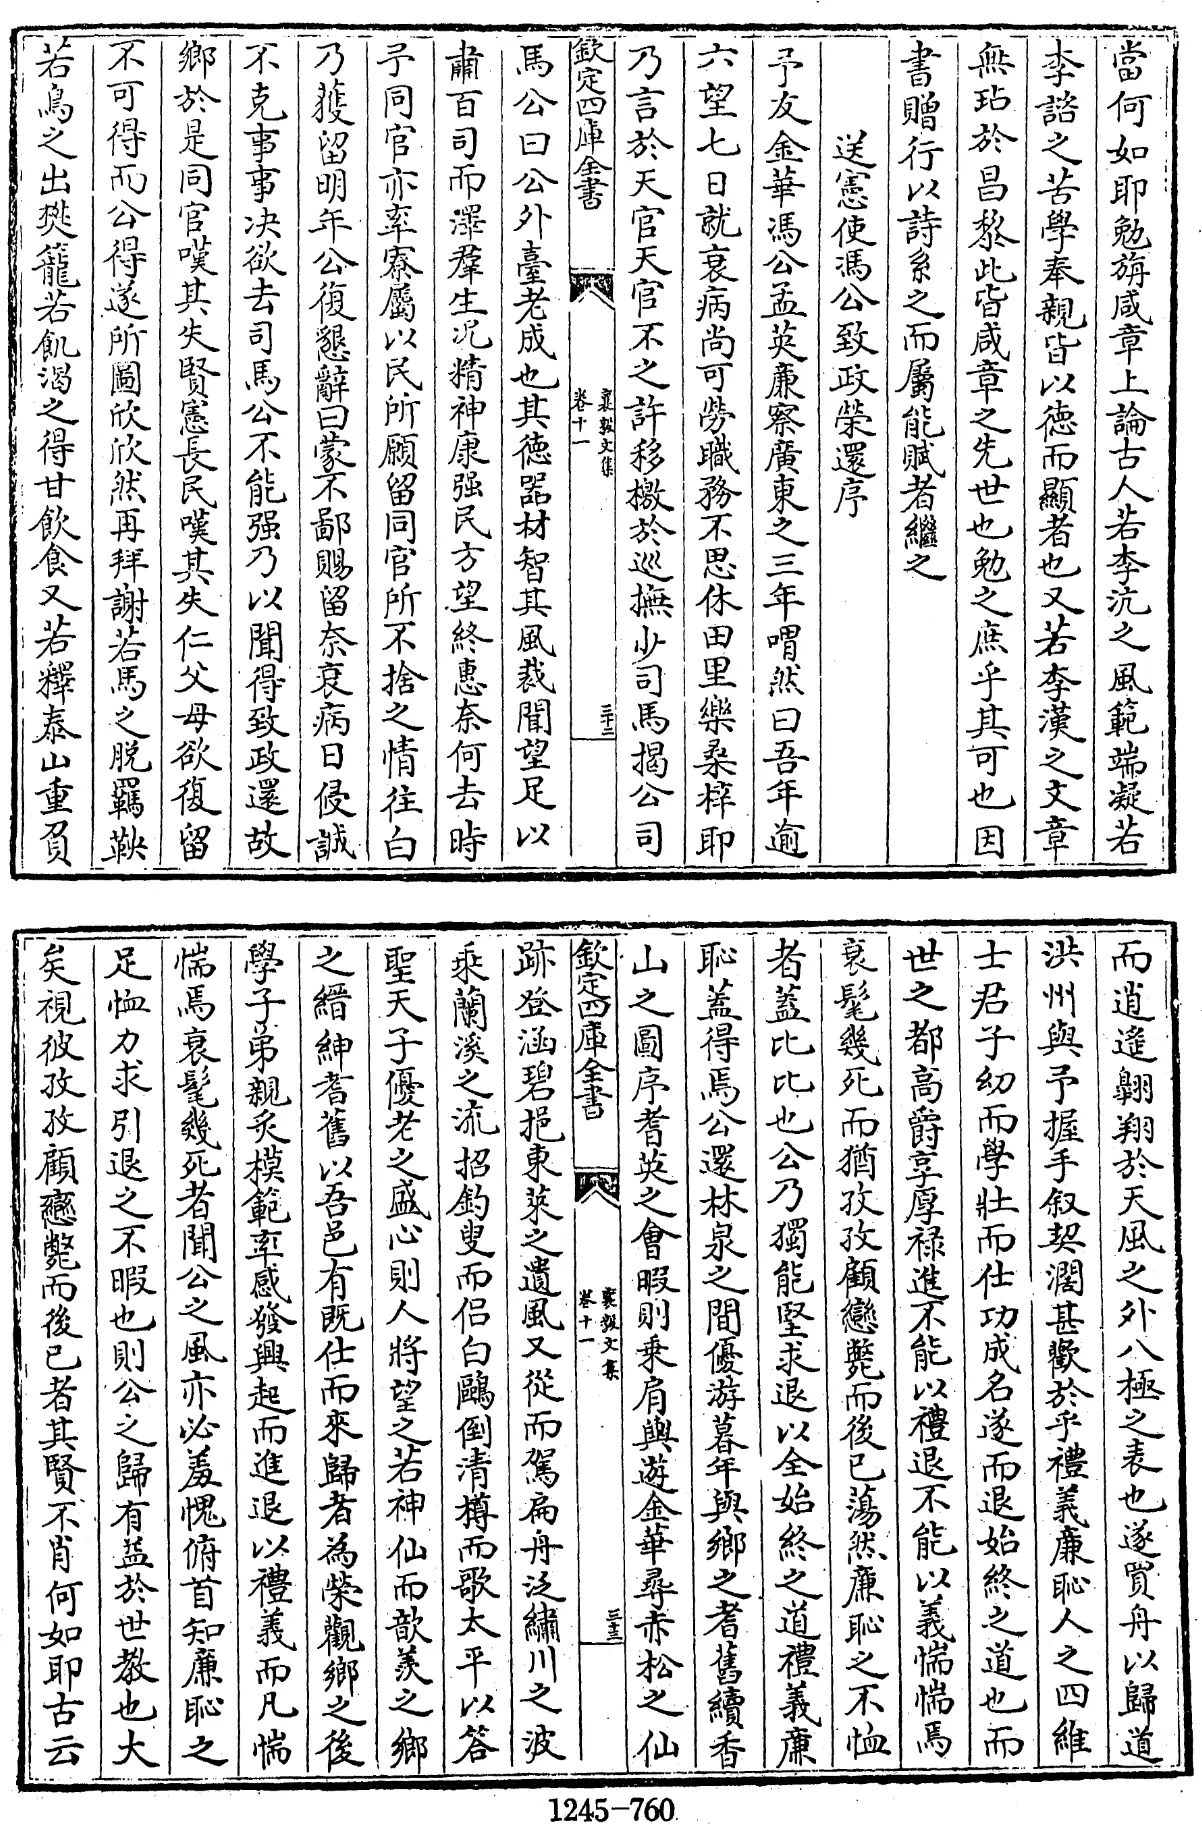 當何如耶勉旃咸章上論古人若李沆之風範端凝若
李諮之苦學奉親皆以徳而顯者也又若李漢之文章
無玷於昌黎此皆咸章之先世也勉之庶乎其可也因
書贈行以詩系之而屬能賦者繼之
送憲使馮公致政榮還序
予友金華馮公孟英廉察廣東之三年喟然曰吾年逾
六望七日就衰病尚可勞職務不思休田里樂桑梓耶
乃言於天官天官不之許移檄於巡撫少司馬揭公司
欽定四庫全書
襄毅文集
卷十一
三十二
馬公曰公外臺老成也其徳器材智其風裁聞望足以
肅百司而澤羣生况精神康强民方望終惠奈何去時
予同官亦率寮屬以民所願留同官所不捨之情往白
乃獲留明年公復懇辭曰蒙不鄙賜留奈衰病日侵誠
不克事事决欲去司馬公不能强乃以聞得致政還故
鄉於是同官嘆其失賢憲長民嘆其失仁父母欲復留
不可得而公得遂所圖欣欣然再拜謝若馬之脱羈鞅
若鳥之出樊籠若飢渴之得甘飲食又若釋泰山重負
而逍遙翺翔於天風之外八極之表也遂買舟以歸道
洪州與予握手叙契濶甚歡於乎禮義廉恥人之四維
士君子幼而學壯而仕功成名遂而退始終之道也而
世之都高爵享厚禄進不能以禮退不能以義惴惴焉
衰髦幾死而猶孜孜顧戀斃而後已蕩然廉恥之不恤
者蓋比比也公乃獨能堅求退以全始終之道禮義廉
恥蓋得焉公還林泉之間優游暮年與鄉之耆舊續香
山之圖序耆英之會暇則乗肩輿遊金華尋赤松之仙
欽定四庫全書
襄毅文集
卷十一
三十三
跡登涵碧挹東萊之遺風又從而駕扁舟泛繡川之波
乘蘭溪之流招釣叟而侣白鷗倒清樽而歌太平以答
聖天子優老之盛心則人將望之若神仙而歆羡之鄉
之縉紳耆舊以吾邑有既仕而來歸者為榮觀鄉之後
學子弟親炙模範率感發興起而進退以禮義而凡惴
惴焉衰髦幾死者聞公之風亦必羞愧俯首知廉恥之
足恤力求引退之不暇也則公之歸有益於世教也大
矣視彼孜孜顧戀斃而後已者其賢不肖何如耶古云
1245-760